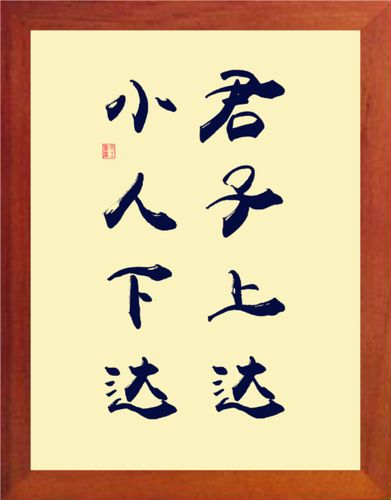 君子上达
小人下达